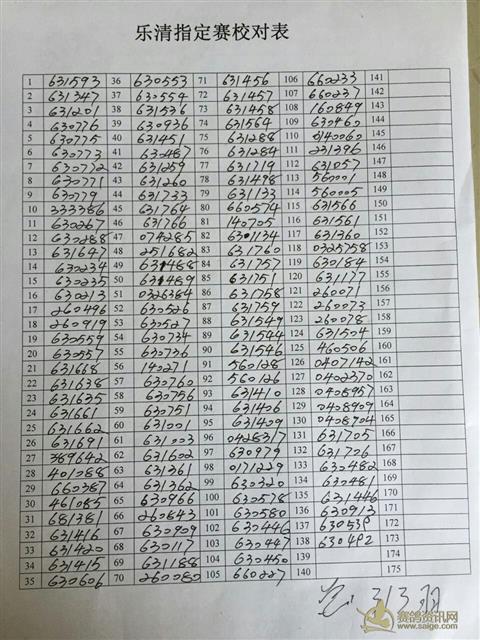 乐清指定赛校对表
1 631593 36 630553 71 631456 106 660233 141
2 631347 37 630554 72 631457 107 660237 142
3 631201 38 631536 73 631458 108 160849 143
4 630776 39 630936 74 631564 109 630460 144
5 630775 40 631451 75 631288 110 0140060 145
6 630773 41 630487 76 631284 111 231396 146
7 630772 42 631259 77 631719 112 631057 147
8 630771 43 631260 78 631498 113 560001 148
9 630779 44 631733 79 631133 114 560005 149
10 333386 45 631764 80 660574 115 631566 150
11 630267 46 631766 81 140705 116 631561 151
12 630288 47 074285 82 631134 117 631360 152
13 631647 48 251682 83 631760 118 0325758 153
14 630234 49 631488 84 631757 119 630184 154
15 630235 50 631489 85 631751 120 631177 155
16 630213 51 0326384 86 631758 121 260071 156
17 260496 52 630526 87 631759 122 260073 157
18 260919 53 630527 88 631549 123 260078 158
19 630559 54 630734 89 631544 124 631504 159
20 630557 55 630736 90 631546 125 460506 160
21 631668 56 140271 91 560128 126 0407142 161
22 631638 57 630760 92 560126 127 0402370 162
23 631635 58 630756 93 631410 128 0408957 163
24 631661 59 630751 94 631406 129 0408909 164
25 631662 60 631001 95 631409 130 0408904 165
26 631691 61 631003 96 0428317 131 631705 166
27 389642 62 631602 97 630979 132 631706 167
28 401088 63 631361 98 0171229 133 630482 168
29 660387 64 631760 99 630320 134 630481 169
30 461085 65 630966 100 630578 135 631446 170
31 681381 66 260843 101 630580 136 630913 171
32 631416 67 630909 102 630446 137 630539 172
33 631420 68 630117 103 630447 138 630492 173
34 631415 69 631188 104 630450 139 174
35 630606 70 260080 105 660227 140 175
313羽
赛鸽资讯网
www.saige.com